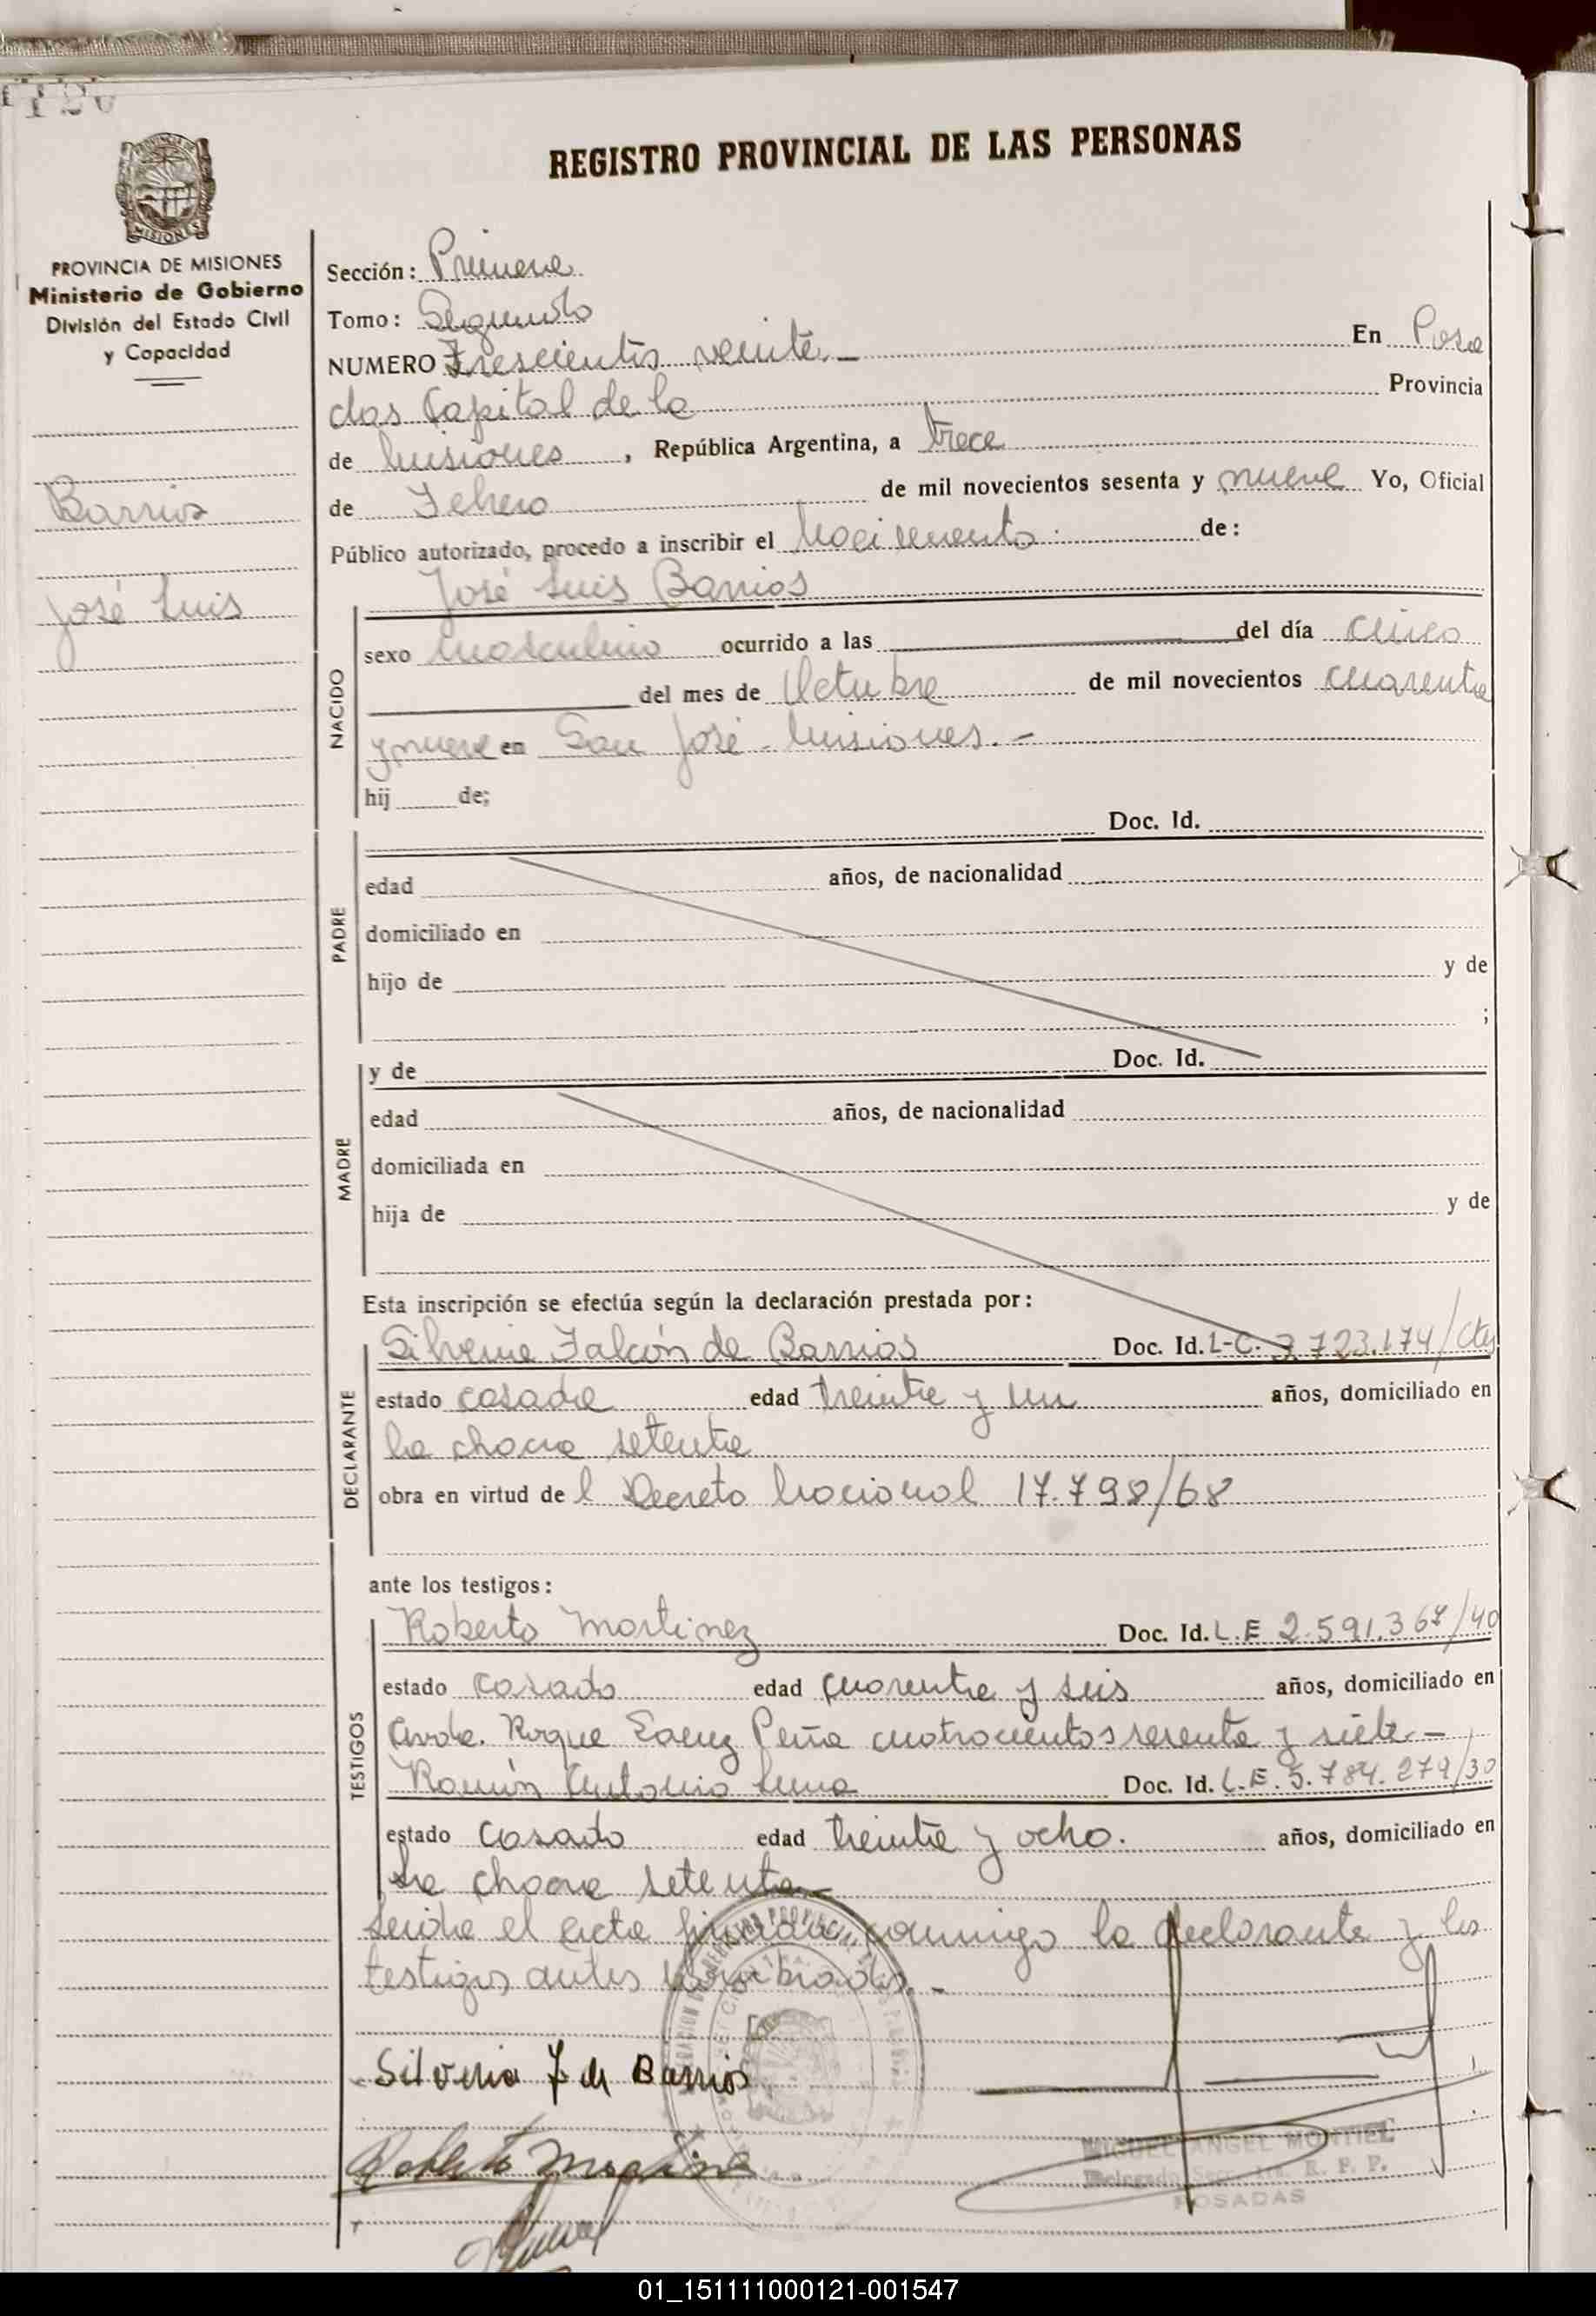 REGISTRO PROVINCIAL DE LAS PERSONAS
MISIONES
PROVINCIA DE MISIONES
Ministerio de Gobierno
División del Estado Civil
y Capacidad
Barrios
José Luis
Sección: Primera
Tomo: Segundo
NUMERO Trescientos veinte.- En Posa
das Capital de la Provincia
de Misiones, República Argentina, a trece
de Febrero de mil novecientos sesenta y nueve Yo, Oficial
Público autorizado, procedo a inscribir el Nacimiento. de:
José Luis Barrios
NACIDO
sexo masculino ocurrido a las del día cinco
del mes de Octubre de mil novecientos cuarenta
y nueve en San José - Misiones.-
hij de;
PADRE
Doc. Id.
edad años, de nacionalidad
domiciliado en
hijo de y de
;
MADRE
y de Doc. Id.
edad años, de nacionalidad
domiciliada en
hija de y de
Esta inscripción se efectúa según la declaración prestada por:
DECLARANTE
Silveria Falcón de Barrios Doc. Id. L-C. 3.723.174/Cts
estado casada edad treinta y un años, domiciliado en
la chacra setenta
obra en virtud de l Decreto Nacional 17.798/68
ante los testigos:
TESTIGOS
Roberto Martinez Doc. Id. L.E 2.591.367/40
estado casado edad cuarenta y seis años, domiciliado en
Avda. Roque Saenz Peña cuatrocientos sesenta y siete.-
Ramón Antonio Luna Doc. Id. L.E. 5.784.279/30
estado casado edad treinta y ocho. años, domiciliado en
La chacra setenta.-
Leida el acta firman conmigo la declarante y los
testigos antes nombrados.-
Silveria F de Barrios
Roberto Martinez
MIGUEL ANGEL MONTIEL
Delegado Secc. 1ra. R. P. P.
POSADAS
01_151111000121-001547